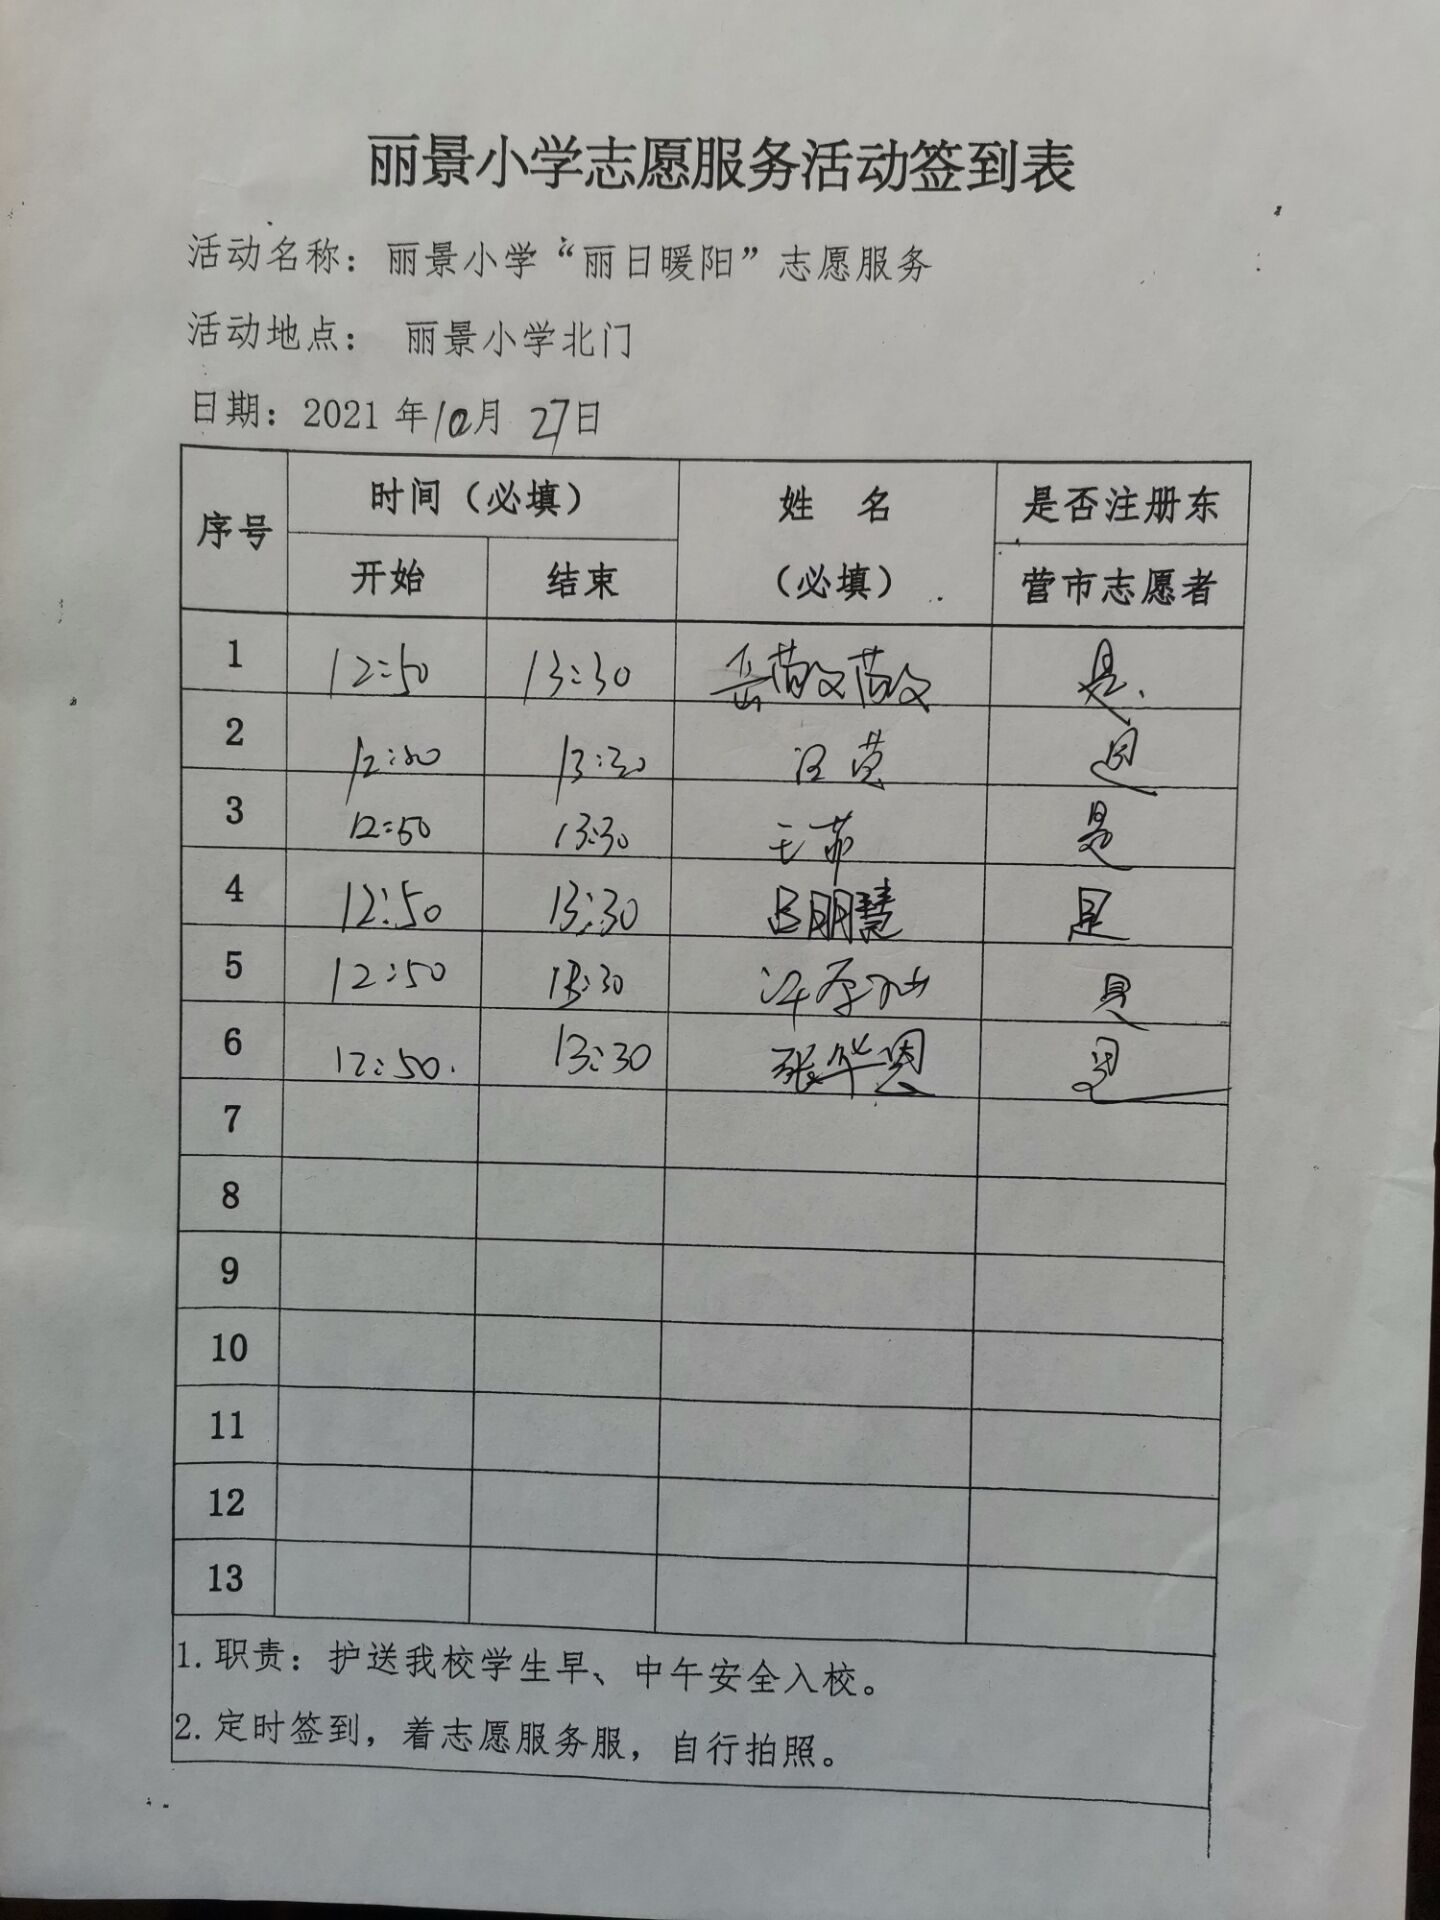 丽景小学志愿服务活动签到表
活动名称：丽景小学“丽日暖阳”志愿服务
活动地点： 丽景小学北门
日期：2021年10月27日
序号 时间（必填） 姓 名 是否注册东
开始 结束 （必填） 营市志愿者
1 12:50 13:30 岳 是.
2 13:30 汪 是
3 12:50 13:30 王 是
4 12:50 13:30 吕明慧 是
5 12:50 13:30 是
6 12:50. 13:30 张华恩 是
7
8
9
10
11
12
13
1.职责：护送我校学生早、中午安全入校。
2.定时签到，着志愿服务服，自行拍照。